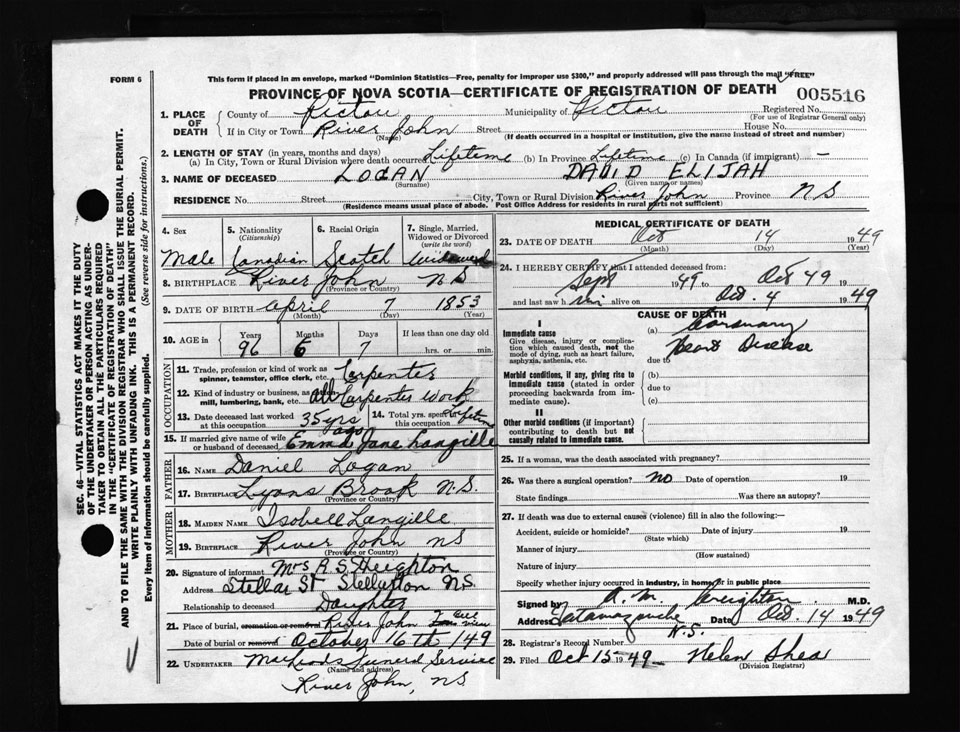 FORM 6
This form if placed in an envelope, marked "Dominion Statistics—Free, penalty for improper use $300," and properly addressed will pass through the mail "FREE"
PROVINCE OF NOVA SCOTIA—CERTIFICATE OF REGISTRATION OF DEATH
005516
1. PLACE OF DEATH County of Pictou Municipality of Pictou Registered No.
(For use of Registrar General only)
If in City or Town River John Street House No.
(Name) (If death occurred in a hospital or institution, give the name instead of street and number)
2. LENGTH OF STAY (in years, months and days)
(a) In City, Town or Rural Division where death occurred Lifetime (b) In Province Lifetime (c) In Canada (if immigrant) —
3. NAME OF DECEASED LOGAN DAVID ELIJAH
(Surname) (Given name or names)
RESIDENCE No. Street City, Town or Rural Division River John Province N S
(Residence means usual place of abode. Post Office Address for residents in rural parts not sufficient)
4. Sex 5. Nationality (Citizenship) 6. Racial Origin 7. Single, Married, Widowed or Divorced (write the word)
Male Canadian Scotch Widowed
8. BIRTHPLACE River John N S
(Province or Country)
9. DATE OF BIRTH April 7 1853
(Month) (Day) (Year)
10. AGE in Years Months Days If less than one day old
96 6 7 hrs. or min.
OCCUPATION
11. Trade, profession or kind of work as spinner, teamster, office clerk, etc. Carpenter
12. Kind of industry or business, as mill, lumbering, bank, etc. All Carpenter Work
13. Date deceased last worked at this occupation 35 yrs ago
14. Total yrs. spent in this occupation Lifetime
15. If married give name of wife or husband of deceased Emma Jane Langille
FATHER
16. NAME Daniel Logan
17. BIRTHPLACE Lyons Brook N.S.
(Province or Country)
MOTHER
18. MAIDEN NAME Isobell Langille
19. BIRTHPLACE River John NS
(Province or Country)
20. Signature of informant Mrs R. S. Heighton
Address Stellar St Stellarton NS
Relationship to deceased Daughter
21. Place of burial, cremation or removal River John
Date of burial or removal October 16th 149
22. UNDERTAKER MacLeods Funeral Service
(Name and address)
River John, NS
MEDICAL CERTIFICATE OF DEATH
23. DATE OF DEATH Oct 14 1949
(Month) (Day) (Year)
24. I HEREBY CERTIFY that I attended deceased from:
Sept 1949 to Oct 49
and last saw h im alive on Oct. 4 1949
CAUSE OF DEATH
I
Immediate cause
Give disease, injury or complication which caused death, not the mode of dying, such as heart failure, asphyxia, asthenia, etc.
(a) Coronary
Heart Disease
due to
Morbid conditions, if any, giving rise to immediate cause (stated in order proceeding backwards from immediate cause).
(b)
due to
(c)
II
Other morbid conditions (if important) contributing to death but not causally related to immediate cause.
25. If a woman, was the death associated with pregnancy?
26. Was there a surgical operation? no Date of operation 19
State findings Was there an autopsy?
27. If death was due to external causes (violence) fill in also the following:—
Accident, suicide or homicide? Date of injury 19
(State which)
Manner of injury
(How sustained)
Nature of injury
Specify whether injury occurred in industry, in home, or in public place
Signed by A. M. Creighton M.D.
Address Tatamagouche N.S. Date Oct. 14 1949
28. Registrar's Record Number
29. Filed Oct 15 1949 Helen Shea
(Division Registrar)
SEC. 46—VITAL STATISTICS ACT MAKES IT THE DUTY
OF THE UNDERTAKER OR PERSON ACTING AS UNDER-
TAKER TO OBTAIN ALL THE PARTICULARS REQUIRED
IN THE "CERTIFICATE OF REGISTRATION OF DEATH"
AND TO FILE THE SAME WITH THE DIVISION REGISTRAR WHO SHALL ISSUE THE BURIAL PERMIT.
WRITE PLAINLY WITH UNFADING INK. THIS IS A PERMANENT RECORD.
Every item of information should be carefully supplied. (See reverse side for instructions.)